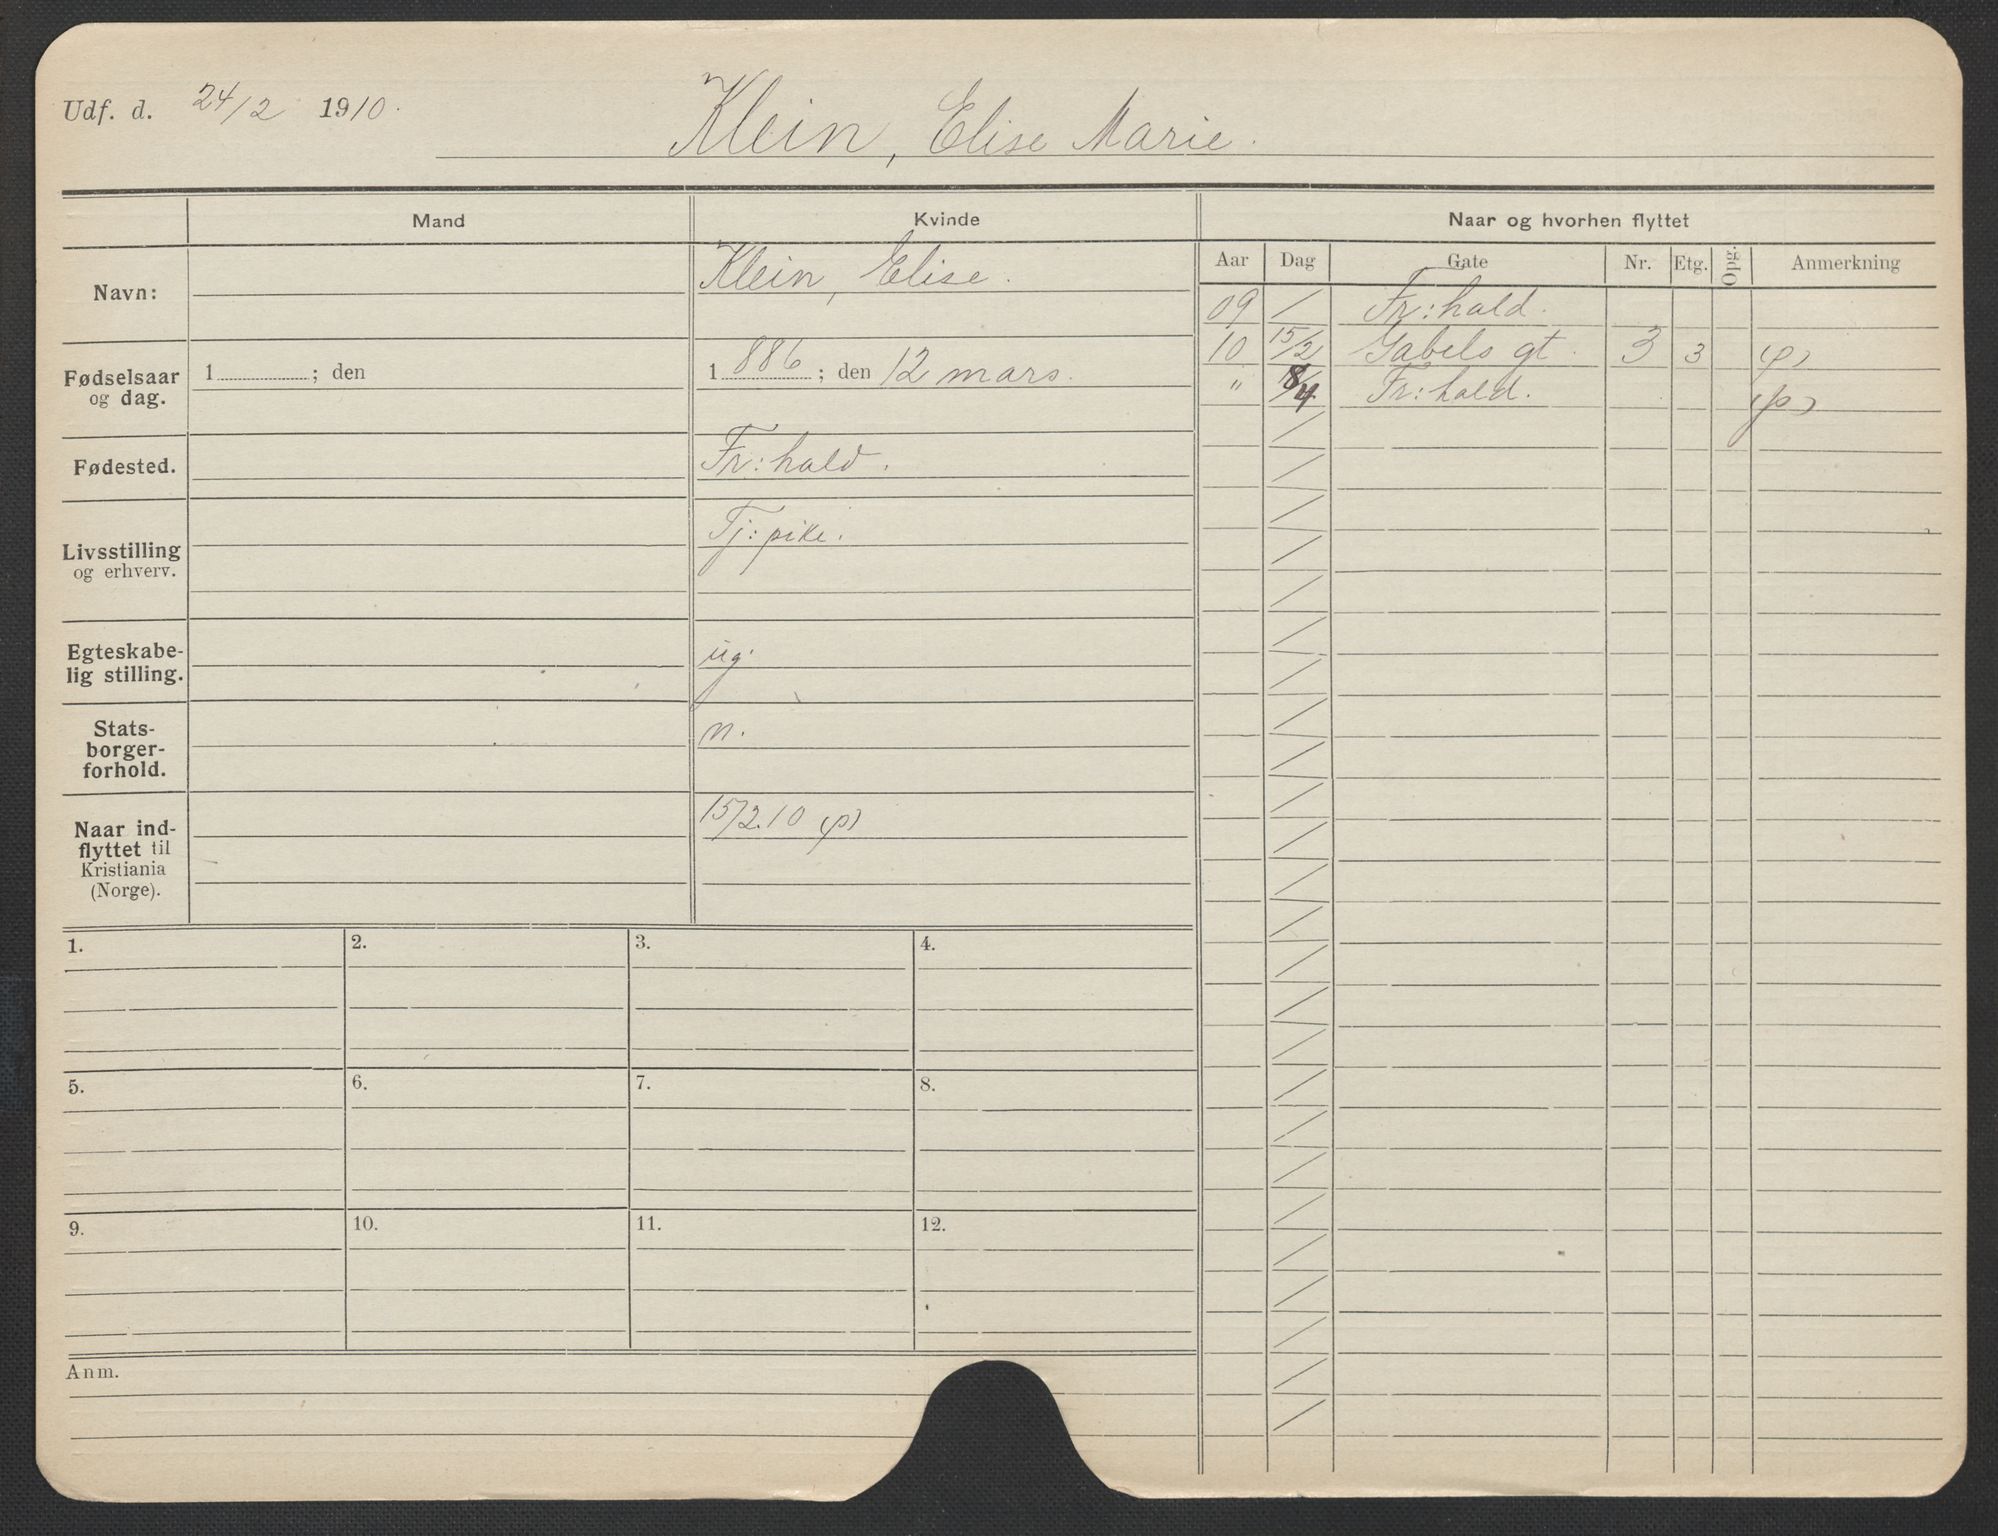 Udf. d. 24/2 1910. Klein, Elise Marie.
Mand Kvinde Naar og hvorhen flyttet
Aar Dag Gate Nr. Etg. Opg. Anmerkning
Navn: Klein, Elise.
Fødselsaar og dag. 1 ; den 1 886 ; den 12 mars.
Fødested. Fr:hald.
Livsstilling og erhverv. Tj:pike.
Egteskabe-
lig stilling. ug.
Stats-
borger-
forhold. n.
Naar ind-
flyttet til
Kristiania
(Norge). 15/2.10 (p)
09 / Fr:hald.
10 15/2 Gabels gt. 3 3 (p)
" 8/4 Fr:hald. (p)
1. 2. 3. 4.
5. 6. 7. 8.
9. 10. 11. 12.
Anm.